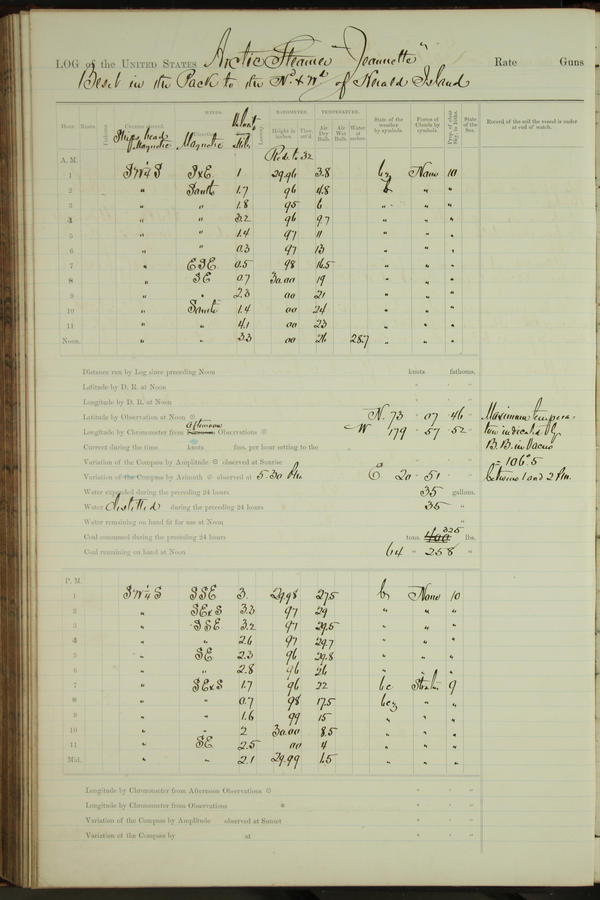 LOG of the UNITED STATES Arctic Steamer "Jeannette" Rate Guns
Beset in the Pack to the Nd. & Wd. of Herald Island
Hour. Knots. Fathoms. Courses steered. WINDS. Leeway. BAROMETER. TEMPERATURE. State of the weather by symbols. Forms of Clouds by symbols. Prop. of clear Sky, in 10ths. State of the Sea. Record of the sail the vessel is under at end of watch.
Ship's head Magnetic Magnetic Height in inches Ther. att'd Air Dry Bulb. Air Wet Bulb. Water at surface
A. M. Red. to 32
1 SW¼S SxE 1 29.96 3.8 bz None 10
2 " South 1.7 96 4.8 b " "
3 " " 1.8 95 6 " " "
4 " " 3.2 96 9.7 " " "
5 " " 1.4 97 11 " " "
6 " " 0.3 97 13 " " "
7 " ESE 0.5 98 16.5 " " "
8 " SE 0.7 30.00 19 " " "
9 " " 2.3 00 21 " " "
10 " South 1.4 00 24 " " "
11 " " 4.1 00 23 " " "
Noon. " " 3.3 00 26 28.7 " " "
Distance run by Log since preceding Noon knots fathoms.
Latitude by D. R. at Noon
Longitude by D. R. at Noon
Latitude by Observation at Noon N. 73 07 46
Longitude by Chronometer from Afternoon Observations W 179 57 52
Current during the time knots fms. per hour setting to the
Variation of the Compass by Amplitude observed at Sunrise
Variation of the Compass by Azimuth observed at 5.30 Pm. E. 20 51
Water expended during the preceding 24 hours 35 gallons.
Water distilled during the preceding 24 hours 35 "
Water remaining on hand fit for use at Noon "
Coal consumed during the preceding 24 hours tons. 400 325 lbs.
Coal remaining on hand at Noon 64 " 258 "
Maximum tempera-
ture indicated by
B.B. in Vacuo
= 106°.5
between 1 and 2 Pm.
P. M.
1 SW¼S SSE 3. 29.98 27.5 b None 10
2 " SExS 3.3 97 29 " " "
3 " SSE 3.2 97 29.5 " " "
4 " " 2.6 97 29.7 " " "
5 " SE 2.3 96 29.8 " " "
6 " " 2.8 96 26 " " "
7 " SExS 1.7 96 22 bc Stratus 9
8 " " 0.7 98 17.5 bcz " "
9 " " 1.6 99 15 " " "
10 " " 2 30.00 8.5 " " "
11 " SE 2.5 00 4 " " "
Mid. " " 2.1 29.99 1.5 " " "
Longitude by Chronometer from Afternoon Observations
Longitude by Chronometer from Observations
Variation of the Compass by Amplitude observed at Sunset
Variation of the Compass by at